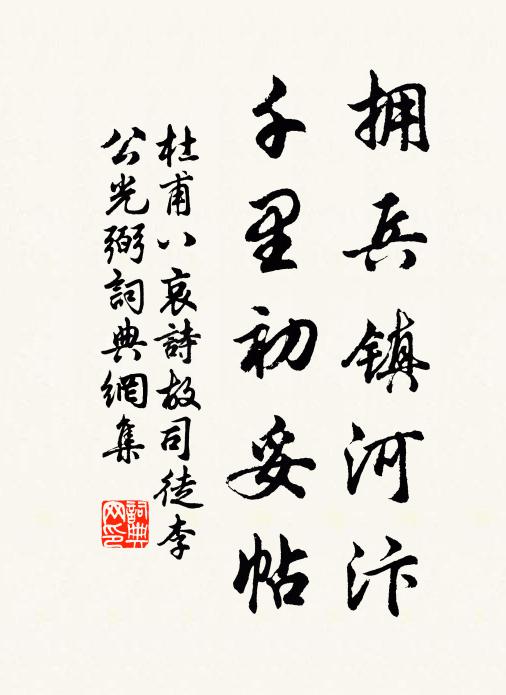 拥兵镇河汴
千里初妥帖
杜甫八哀詩故司徒李
公光弼詞典網集
詞典网印